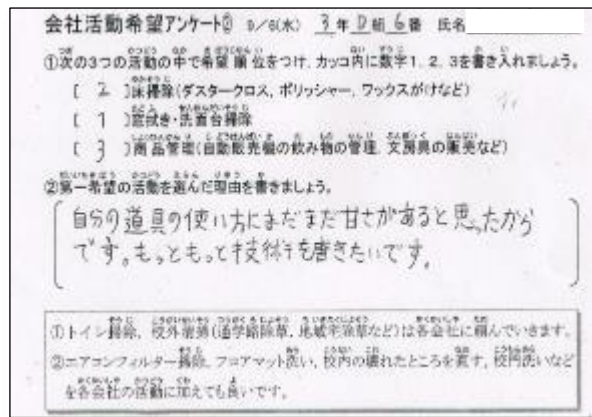 会社活動希望アンケート② 9/6(水) 3年D組6番 氏名
①次の3つの活動の中で希望順位をつけ、カッコ内に数字1、2、3を書き入れましょう。
[ 2 ]床掃除(ダスタークロス、ポリッシャー、ワックスがけなど)
[ 1 ]窓拭き・洗面台掃除
[ 3 ]商品管理(自動販売機の飲み物の管理、文房具の販売など)
②第一希望の活動を選んだ理由を書きましょう。
自分の道具の使い方にまだまだ甘さがあると思ったから
です。もっともっと技術を磨きたいです。
①トイレ掃除、校外清掃(通学路除草、地域宅除草など)は各会社に頼んでいきます。
②エアコンフィルター掃除、フロアマット洗い、校内の壊れたところを直す、校門洗いなど
を各会社の活動に加えても良いです。